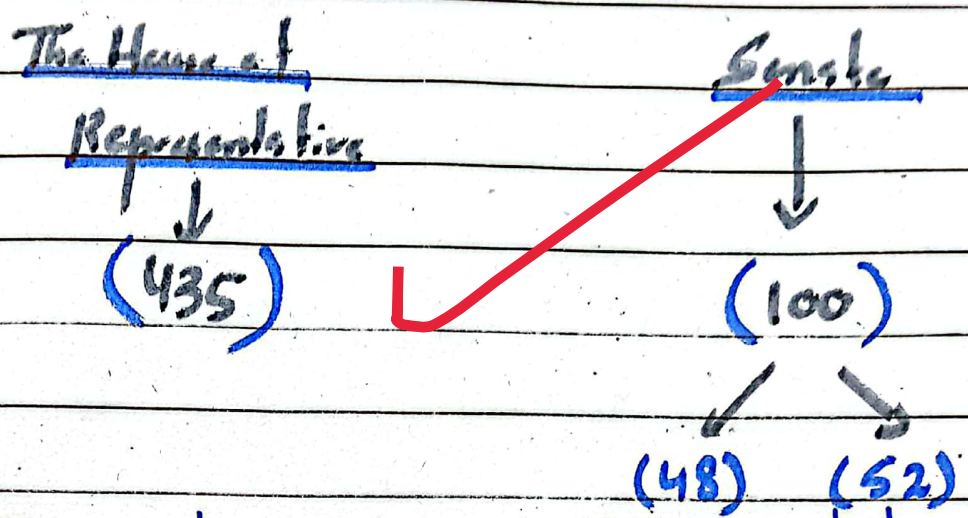 The House of
Representative
(435)
Senate
(100)
(48) (52)